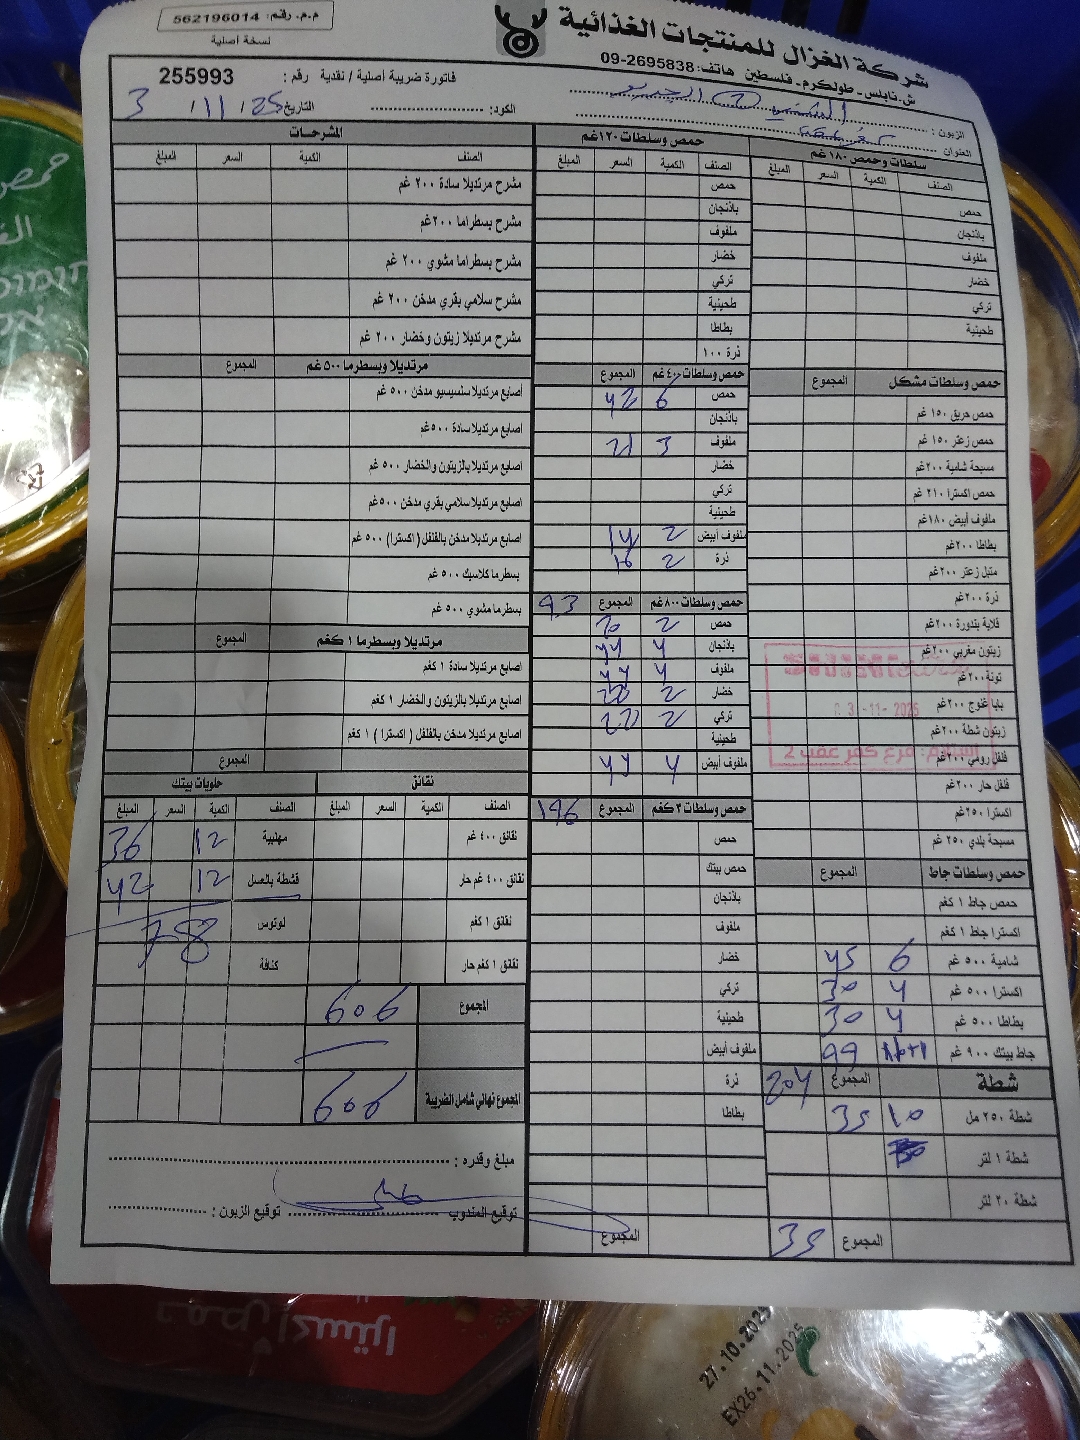 م.م. رقم: 562196014
نسخة أصلية
شركة الغزال للمنتجات الغذائية
ش.نابلس - طولكرم - فلسطين هاتف: 2695838-09
فاتورة ضريبة أصلية / نقدية رقم: 255993
الزبون:
العنوان
الكود:
التاريخ 3 / 11 / 25
سلطات وحمص ١٨٠غم
الصنف الكمية السعر المبلغ
حمص
باذنجان
ملفوف
خضار
تركي
طحينية
حمص وسلطات مشكل المجموع
حمص حريق ١٥٠ غم
حمص زعتر ١٥٠ غم
مسبحة شامية ٢٠٠غم
حمص اكسترا ٢١٠ غم
ملفوف أبيض ١٨٠غم
بطاطا ٢٠٠غم
متبل زعتر ٢٠٠غم
ذرة ٢٠٠غم
قلاية بندورة ٢٠٠غم
زيتون مغربي ٢٠٠غم
تونة ٢٠٠غم
بابا غنوج ٢٠٠غم
زيتون شطة ٢٠٠غم
فلفل رومي ٢٠٠غم
فلفل حار ٢٠٠غم
اكسترا ٢٥٠غم
مسبحة بلدي ٢٥٠ غم
حمص وسلطات جاط المجموع
حمص جاط ١ كغم
اكسترا جاط ١ كغم
شامية ٥٠٠ غم 6 45
اكسترا ٥٠٠ غم 4 30
بطاطا ٥٠٠ غم 4 30
جاط بيتك ٩٠٠ غم 99
شطة المجموع 204
شطة ٢٥٠ مل 10 35
شطة ١ لتر
شطة ٢٠ لتر
المجموع 35
حمص وسلطات ١٢٠غم
الصنف الكمية السعر المبلغ
حمص
باذنجان
ملفوف
خضار
تركي
طحينية
بطاطا
ذرة ١٠٠
حمص وسلطات ٤٠٠غم المجموع
حمص 6 42
باذنجان
ملفوف 3 21
خضار
تركي
طحينية
ملفوف أبيض 2 14
ذرة 2 16
حمص وسلطات ٨٠٠غم المجموع 93
حمص 2 20
باذنجان 4 44
ملفوف 4 44
خضار 2
تركي 2 22
طحينية
ملفوف أبيض 4 44
حمص وسلطات ٣ كغم المجموع 196
حمص
حمص بيتك
باذنجان
ملفوف
خضار
تركي
طحينية
ملفوف أبيض
ذرة
بطاطا
المجموع
المشرحات
الصنف الكمية السعر المبلغ
مشرح مرتديلا سادة ٢٠٠ غم
مشرح بسطراما ٢٠٠غم
مشرح بسطراما مشوي ٢٠٠ غم
مشرح سلامي بقري مدخن ٢٠٠ غم
مشرح مرتديلا زيتون وخضار ٢٠٠ غم
مرتديلا وبسطرما ٥٠٠ غم المجموع
اصابع مرتديلا سلسيسيو مدخن ٥٠٠ غم
اصابع مرتديلا سادة ٥٠٠غم
اصابع مرتديلا بالزيتون والخضار ٥٠٠ غم
اصابع مرتديلا سلامي بقري مدخن ٥٠٠غم
اصابع مرتديلا مدخن بالفلفل ( اكسترا) ٥٠٠ غم
بسطرما كلاسيك ٥٠٠ غم
بسطرما مشوي ٥٠٠ غم
مرتديلا وبسطرما ١ كغم المجموع
اصابع مرتديلا سادة ١ كغم
اصابع مرتديلا بالزيتون والخضار ١ كغم
اصابع مرتديلا مدخن بالفلفل ( اكسترا ) ١ كغم
المجموع
نقانق
الصنف الكمية السعر المبلغ
نقانق ٤٠٠ غم
نقانق ٤٠٠ غم حار
نقانق ١ كغم
نقانق ١ كغم حار
حلويات بيتك
الصنف الكمية السعر المبلغ
مهلبية 12 36
قشطة بالعسل 12 42
لوتوس 78
كنافة
المجموع 606
المجموع نهائي شامل الضريبة 606
مبلغ وقدره:
توقيع المندوب توقيع الزبون:
استلام: فرع كفر عقب 2
حمص اكسترا
27.10.2025
EX26.11.2025